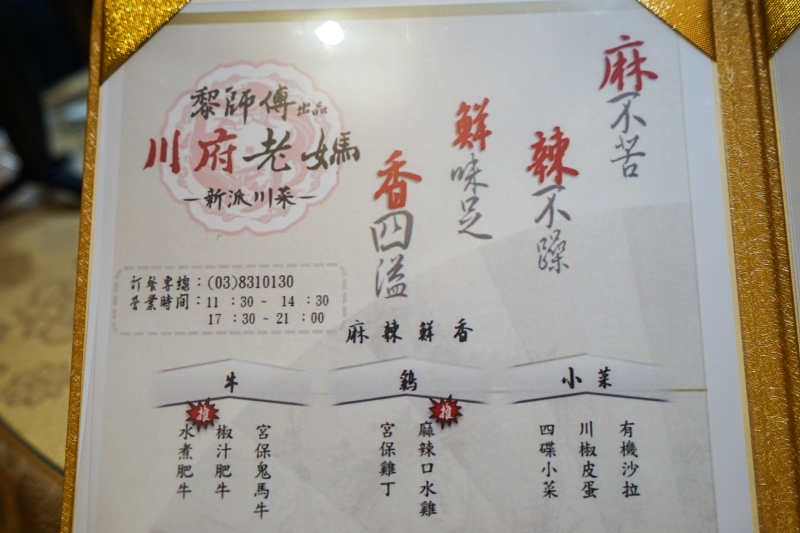 黎師傅出品
川府老媽
—新派川菜—
麻不苦
辣不躁
鮮味足
香四溢
訂餐專線：(03)8310130
營業時間：11：30～14：30
17：30～21：00
麻辣鮮香
牛
宮保鬼馬牛
椒汁肥牛
推
水煮肥牛
鷄
推
麻辣口水雞
宮保雞丁
小菜
有機沙拉
川椒皮蛋
四碟小菜